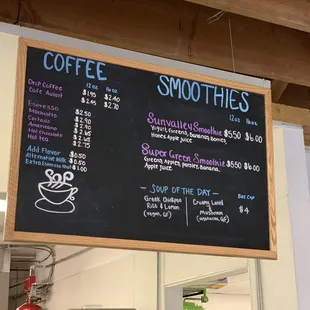 COFFEE
12oz
Drip Coffee $1.95 $2.40
Café Aulait $2.45 $2.70
Espresso $2.50
Macchiato
Cortado
Americano
Hot chocolate
Hot tea $2.75
Add Flavor $0.50
Alternative Milk $0.50
Extra Espresso $1.00
SMOOTHIES
12oz
Sunvalley Smoothie $5.50 $6.00
Yogurt, Greens, Banana, Berries,
Honey Apple Juice
Super Green Smoothie $5.50 $6.00
Greens, Apples, Parsley, Banana,
Apple Juice
- SOUP OF THE DAY -
Greek Chickpea
Rice & Lemon
(vegan, GF)
Creamy Lentil
&
Mushroom
(vegan, GF)
$4